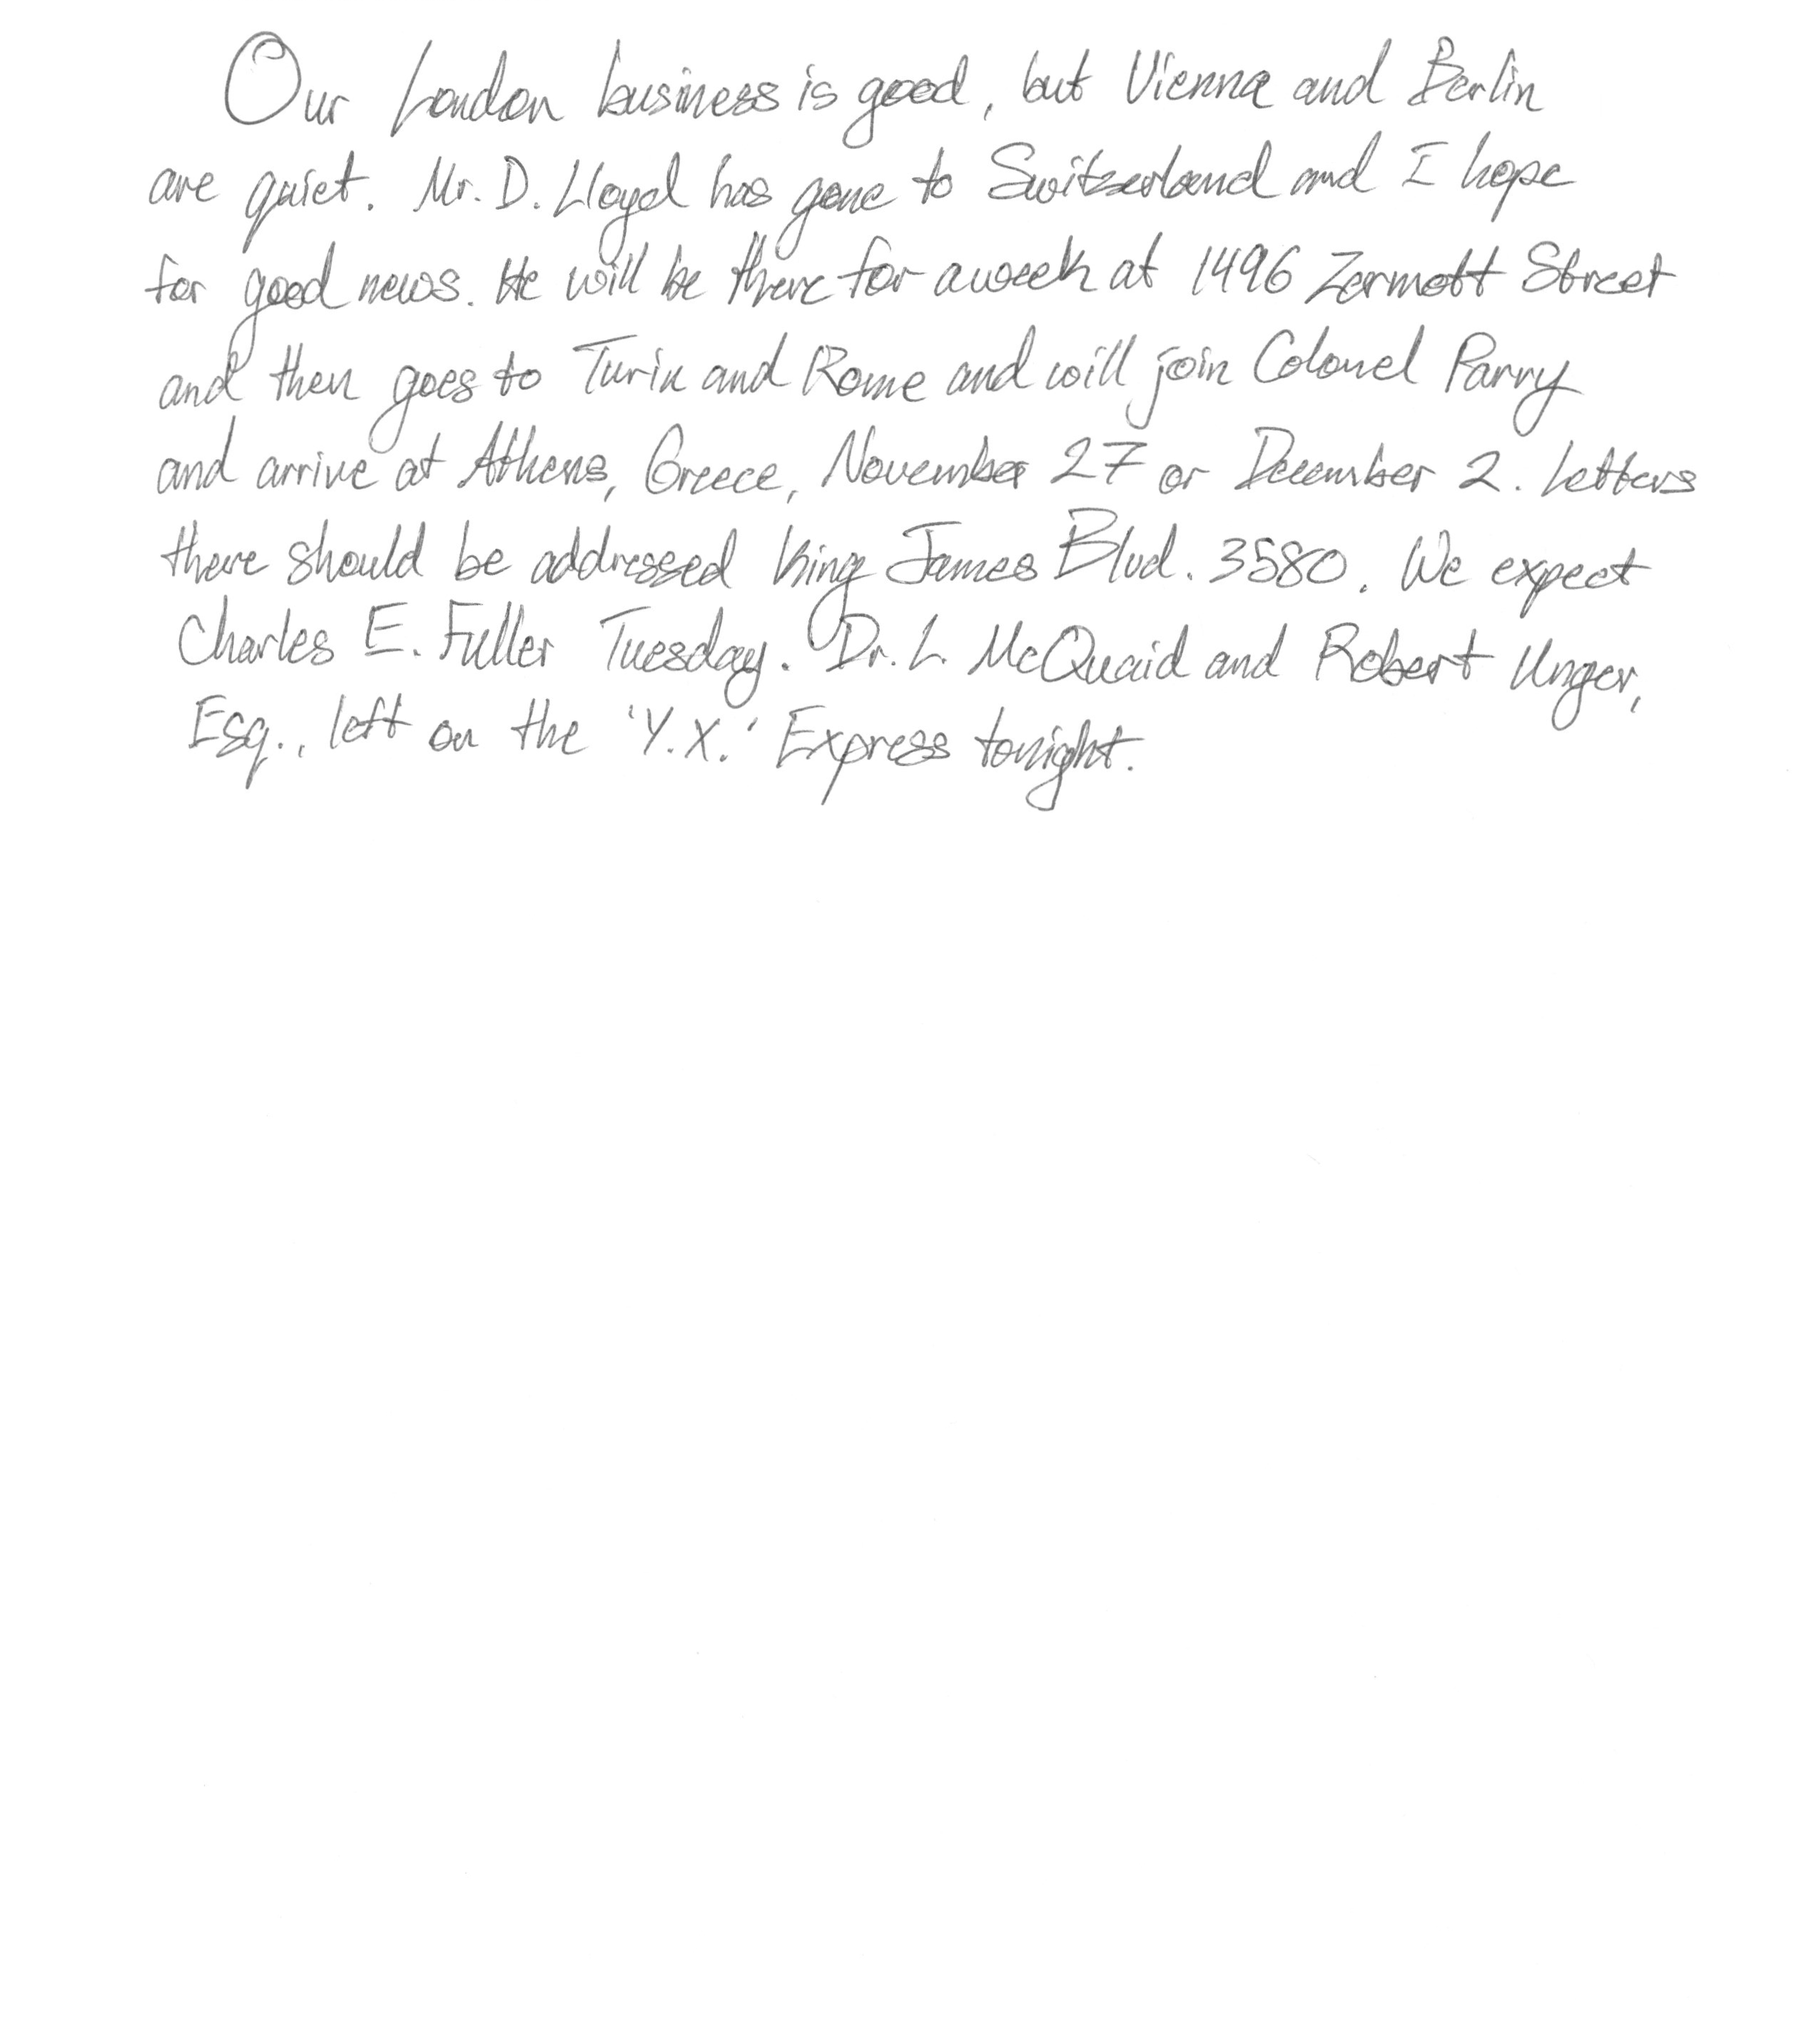 Our London business is good, but Vienna and Berlin
are quiet. Mr. D. Lloyd has gone to Switzerland and I hope
for good news. He will be there for a week at 1496 Zermott Street
and then goes to Turin and Rome and will join Colonel Parry
and arrive at Athens, Greece, November 27 or December 2. Letters
there should be addressed King James Blvd. 3580. We expect
Charles E. Fuller Tuesday. Dr. L. McQuaid and Robert Unger,
Esq., left on the 'Y.X.' Express tonight.